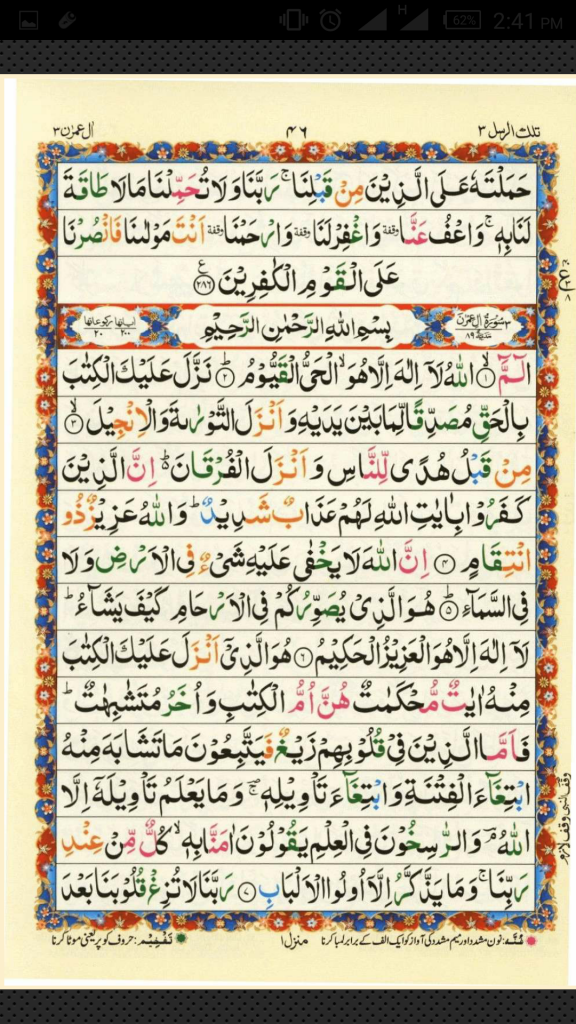 62% 2:41 PM
H
تلك الرسل ٣ ٤٦ اٰل عمرٰن ٣
حَمَلْتَهٗ عَلَى الَّذِيْنَ مِنْ قَبْلِنَا ۚ رَبَّنَا وَلَا تُحَمِّلْنَا مَا لَا طَاقَةَ
لَنَا بِهٖ ۚ وَاعْفُ عَنَّا وقفة وَاغْفِرْ لَنَا وقفة وَارْحَمْنَا وقفة اَنْتَ مَوْلٰىنَا فَانْصُرْنَا
عَلَى الْقَوْمِ الْكٰفِرِيْنَ ﴿٢٨٦﴾ ع
٣ سُوْرَةُ اٰلِ عِمْرٰنَ مَدَنِيَّةٌ ٨٩ بِسْمِ اللهِ الرَّحْمٰنِ الرَّحِيْمِ اٰياتها ٢٠٠ ركوعاتها ٢٠
الٓمّٓ ﴿١﴾ۙ اللهُ لَاۤ اِلٰهَ اِلَّا هُوَ ۙ الْحَىُّ الْقَيُّوْمُ ﴿٢﴾ؕ نَزَّلَ عَلَيْكَ الْكِتٰبَ
بِالْحَقِّ مُصَدِّقًا لِّمَا بَيْنَ يَدَيْهِ وَاَنْزَلَ التَّوْرٰىةَ وَالْاِنْجِيْلَ ﴿٣﴾ۙ
مِنْ قَبْلُ هُدًى لِّلنَّاسِ وَاَنْزَلَ الْفُرْقَانَ ۬ؕ اِنَّ الَّذِيْنَ
كَفَرُوْا بِاٰيٰتِ اللهِ لَهُمْ عَذَابٌ شَدِيْدٌ ؕ وَاللهُ عَزِيْزٌ ذُو
انْتِقَامٍ ﴿٤﴾ اِنَّ اللهَ لَا يَخْفٰى عَلَيْهِ شَىْءٌ فِى الْاَرْضِ وَلَا
فِى السَّمَآءِ ﴿٥﴾ؕ هُوَ الَّذِىْ يُصَوِّرُكُمْ فِى الْاَرْحَامِ كَيْفَ يَشَآءُ ؕ
لَاۤ اِلٰهَ اِلَّا هُوَ الْعَزِيْزُ الْحَكِيْمُ ﴿٦﴾ هُوَ الَّذِىْۤ اَنْزَلَ عَلَيْكَ الْكِتٰبَ
مِنْهُ اٰيٰتٌ مُّحْكَمٰتٌ هُنَّ اُمُّ الْكِتٰبِ وَاُخَرُ مُتَشٰبِهٰتٌ ؕ
فَاَمَّا الَّذِيْنَ فِىْ قُلُوْبِهِمْ زَيْغٌ فَيَتَّبِعُوْنَ مَا تَشَابَهَ مِنْهُ
ابْتِغَآءَ الْفِتْنَةِ وَابْتِغَآءَ تَاْوِيْلِهٖ ۚ وَمَا يَعْلَمُ تَاْوِيْلَهٗۤ اِلَّا
اللهُ ۘ وَالرّٰسِخُوْنَ فِى الْعِلْمِ يَقُوْلُوْنَ اٰمَنَّا بِهٖ ۙ كُلٌّ مِّنْ عِنْدِ
رَبِّنَا ۚ وَمَا يَذَّكَّرُ اِلَّاۤ اُولُوا الْاَلْبَابِ ﴿٧﴾ رَبَّنَا لَا تُزِغْ قُلُوْبَنَا بَعْدَ
غُنَّه: نون مشدد اور میم مشدد کی آواز کو ایک الف کے برابر لمبا کرنا منزل ١ تَفْخِيْم: حروف کو پُر یعنی موٹا کرنا